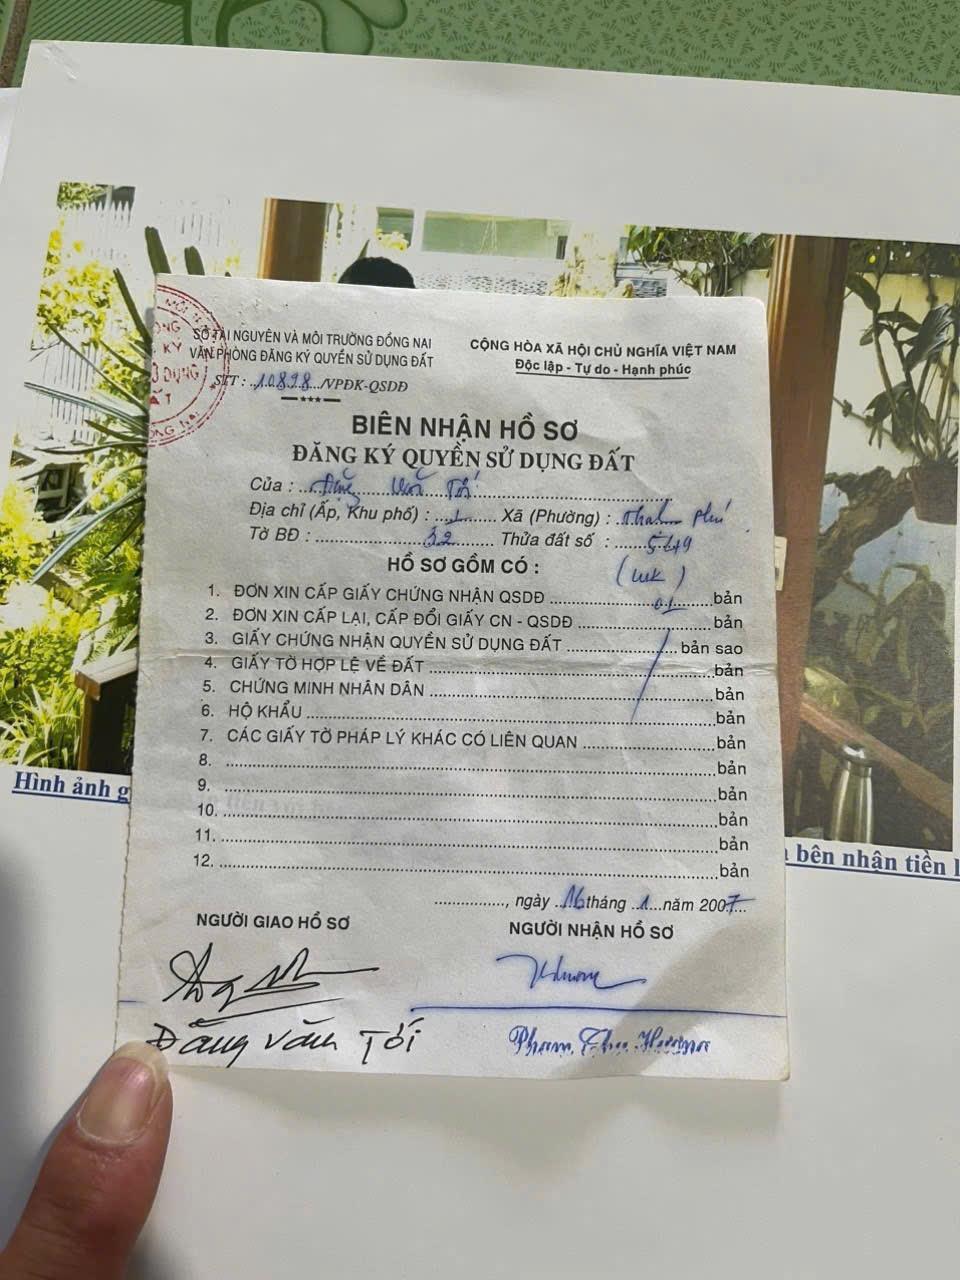 SỞ TÀI NGUYÊN VÀ MÔI TRƯỜNG ĐỒNG NAI
VĂN PHÒNG ĐĂNG KÝ QUYỀN SỬ DỤNG ĐẤT
STT : 10898 /VPĐK-QSDĐ
CỘNG HÒA XÃ HỘI CHỦ NGHĨA VIỆT NAM
Độc lập - Tự do - Hạnh phúc
BIÊN NHẬN HỒ SƠ
ĐĂNG KÝ QUYỀN SỬ DỤNG ĐẤT
Của : Đặng Văn Tối
Địa chỉ (Ấp, Khu phố) : 1 Xã (Phường) : Thạnh Phú
Tờ BĐ : 32 Thửa đất số :
HỒ SƠ GỒM CÓ :
1. ĐƠN XIN CẤP GIẤY CHỨNG NHẬN QSDĐ 01 bản
2. ĐƠN XIN CẤP LẠI, CẤP ĐỔI GIẤY CN - QSDĐ bản
3. GIẤY CHỨNG NHẬN QUYỀN SỬ DỤNG ĐẤT bản sao
4. GIẤY TỜ HỢP LỆ VỀ ĐẤT bản
5. CHỨNG MINH NHÂN DÂN bản
6. HỘ KHẨU bản
7. CÁC GIẤY TỜ PHÁP LÝ KHÁC CÓ LIÊN QUAN bản
8. bản
9. bản
10. bản
11. bản
12. bản
, ngày 16 tháng 1 năm 2007
NGƯỜI GIAO HỒ SƠ
NGƯỜI NHẬN HỒ SƠ
Đặng Văn Tối
Phạm Thu Hương
Hình ảnh
bên nhận tiền